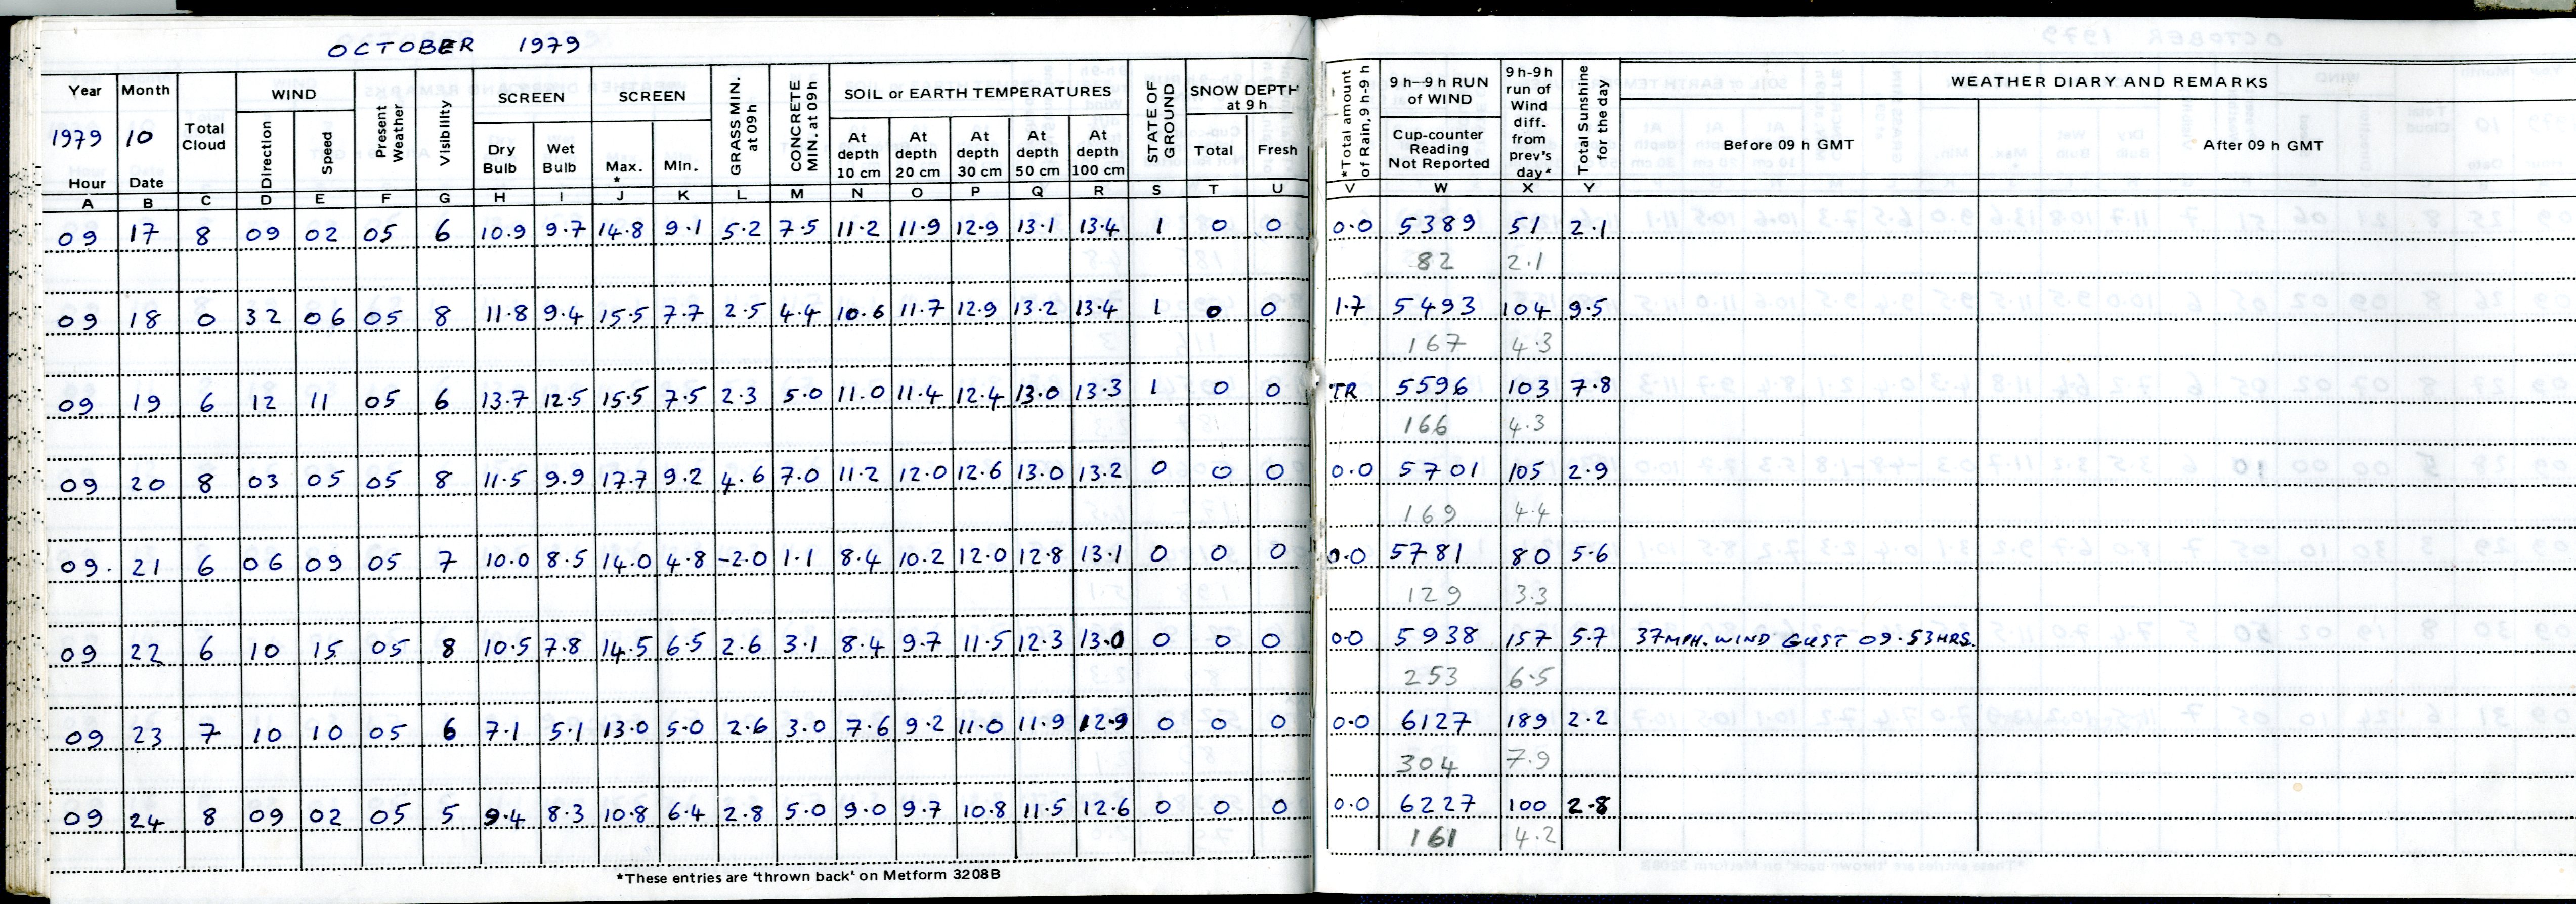 OCTOBER 1979
Year Month Total Cloud WIND Present Weather Visibility SCREEN SCREEN GRASS MIN. at 09 h CONCRETE MIN. at 09 h SOIL or EARTH TEMPERATURES STATE OF GROUND SNOW DEPTH at 9 h *Total amount of Rain, 9 h-9 h 9 h—9 h RUN of WIND 9 h-9 h run of Wind diff. from prev's day* Total Sunshine for the day WEATHER DIARY AND REMARKS
1979 10 Direction Speed Dry Bulb Wet Bulb Max. * Min. At depth 10 cm At depth 20 cm At depth 30 cm At depth 50 cm At depth 100 cm Total Fresh Cup-counter Reading Not Reported Before 09 h GMT After 09 h GMT
Hour Date
A B C D E F G H I J K L M N O P Q R S T U V W X Y
09 17 8 09 02 05 6 10.9 9.7 14.8 9.1 5.2 7.5 11.2 11.9 12.9 13.1 13.4 1 0 0 0.0 5389 51 2.1
82 2.1
09 18 0 32 06 05 8 11.8 9.4 15.5 7.7 2.5 4.4 10.6 11.7 12.9 13.2 13.4 1 0 0 1.7 5493 104 9.5
167 4.3
09 19 6 12 11 05 6 13.7 12.5 15.5 7.5 2.3 5.0 11.0 11.4 12.4 13.0 13.3 1 0 0 TR 5596 103 7.8
166 4.3
09 20 8 03 05 05 8 11.5 9.9 17.7 9.2 4.6 7.0 11.2 12.0 12.6 13.0 13.2 0 0 0 0.0 5701 105 2.9
169 4.4
09. 21 6 06 09 05 7 10.0 8.5 14.0 4.8 -2.0 1.1 8.4 10.2 12.0 12.8 13.1 0 0 0 0.0 5781 80 5.6
129 3.3
09 22 6 10 15 05 8 10.5 7.8 14.5 6.5 2.6 3.1 8.4 9.7 11.5 12.3 13.0 0 0 0 0.0 5938 157 5.7 37MPH. WIND GUST 09.53HRS.
253 6.5
09 23 7 10 10 05 6 7.1 5.1 13.0 5.0 2.6 3.0 7.6 9.2 11.0 11.9 12.9 0 0 0 0.0 6127 189 2.2
304 7.9
09 24 8 09 02 05 5 9.4 8.3 10.8 6.4 2.8 5.0 9.0 9.7 10.8 11.5 12.6 0 0 0 0.0 6227 100 2.8
161 4.2
*These entries are 'thrown back' on Metform 3208B